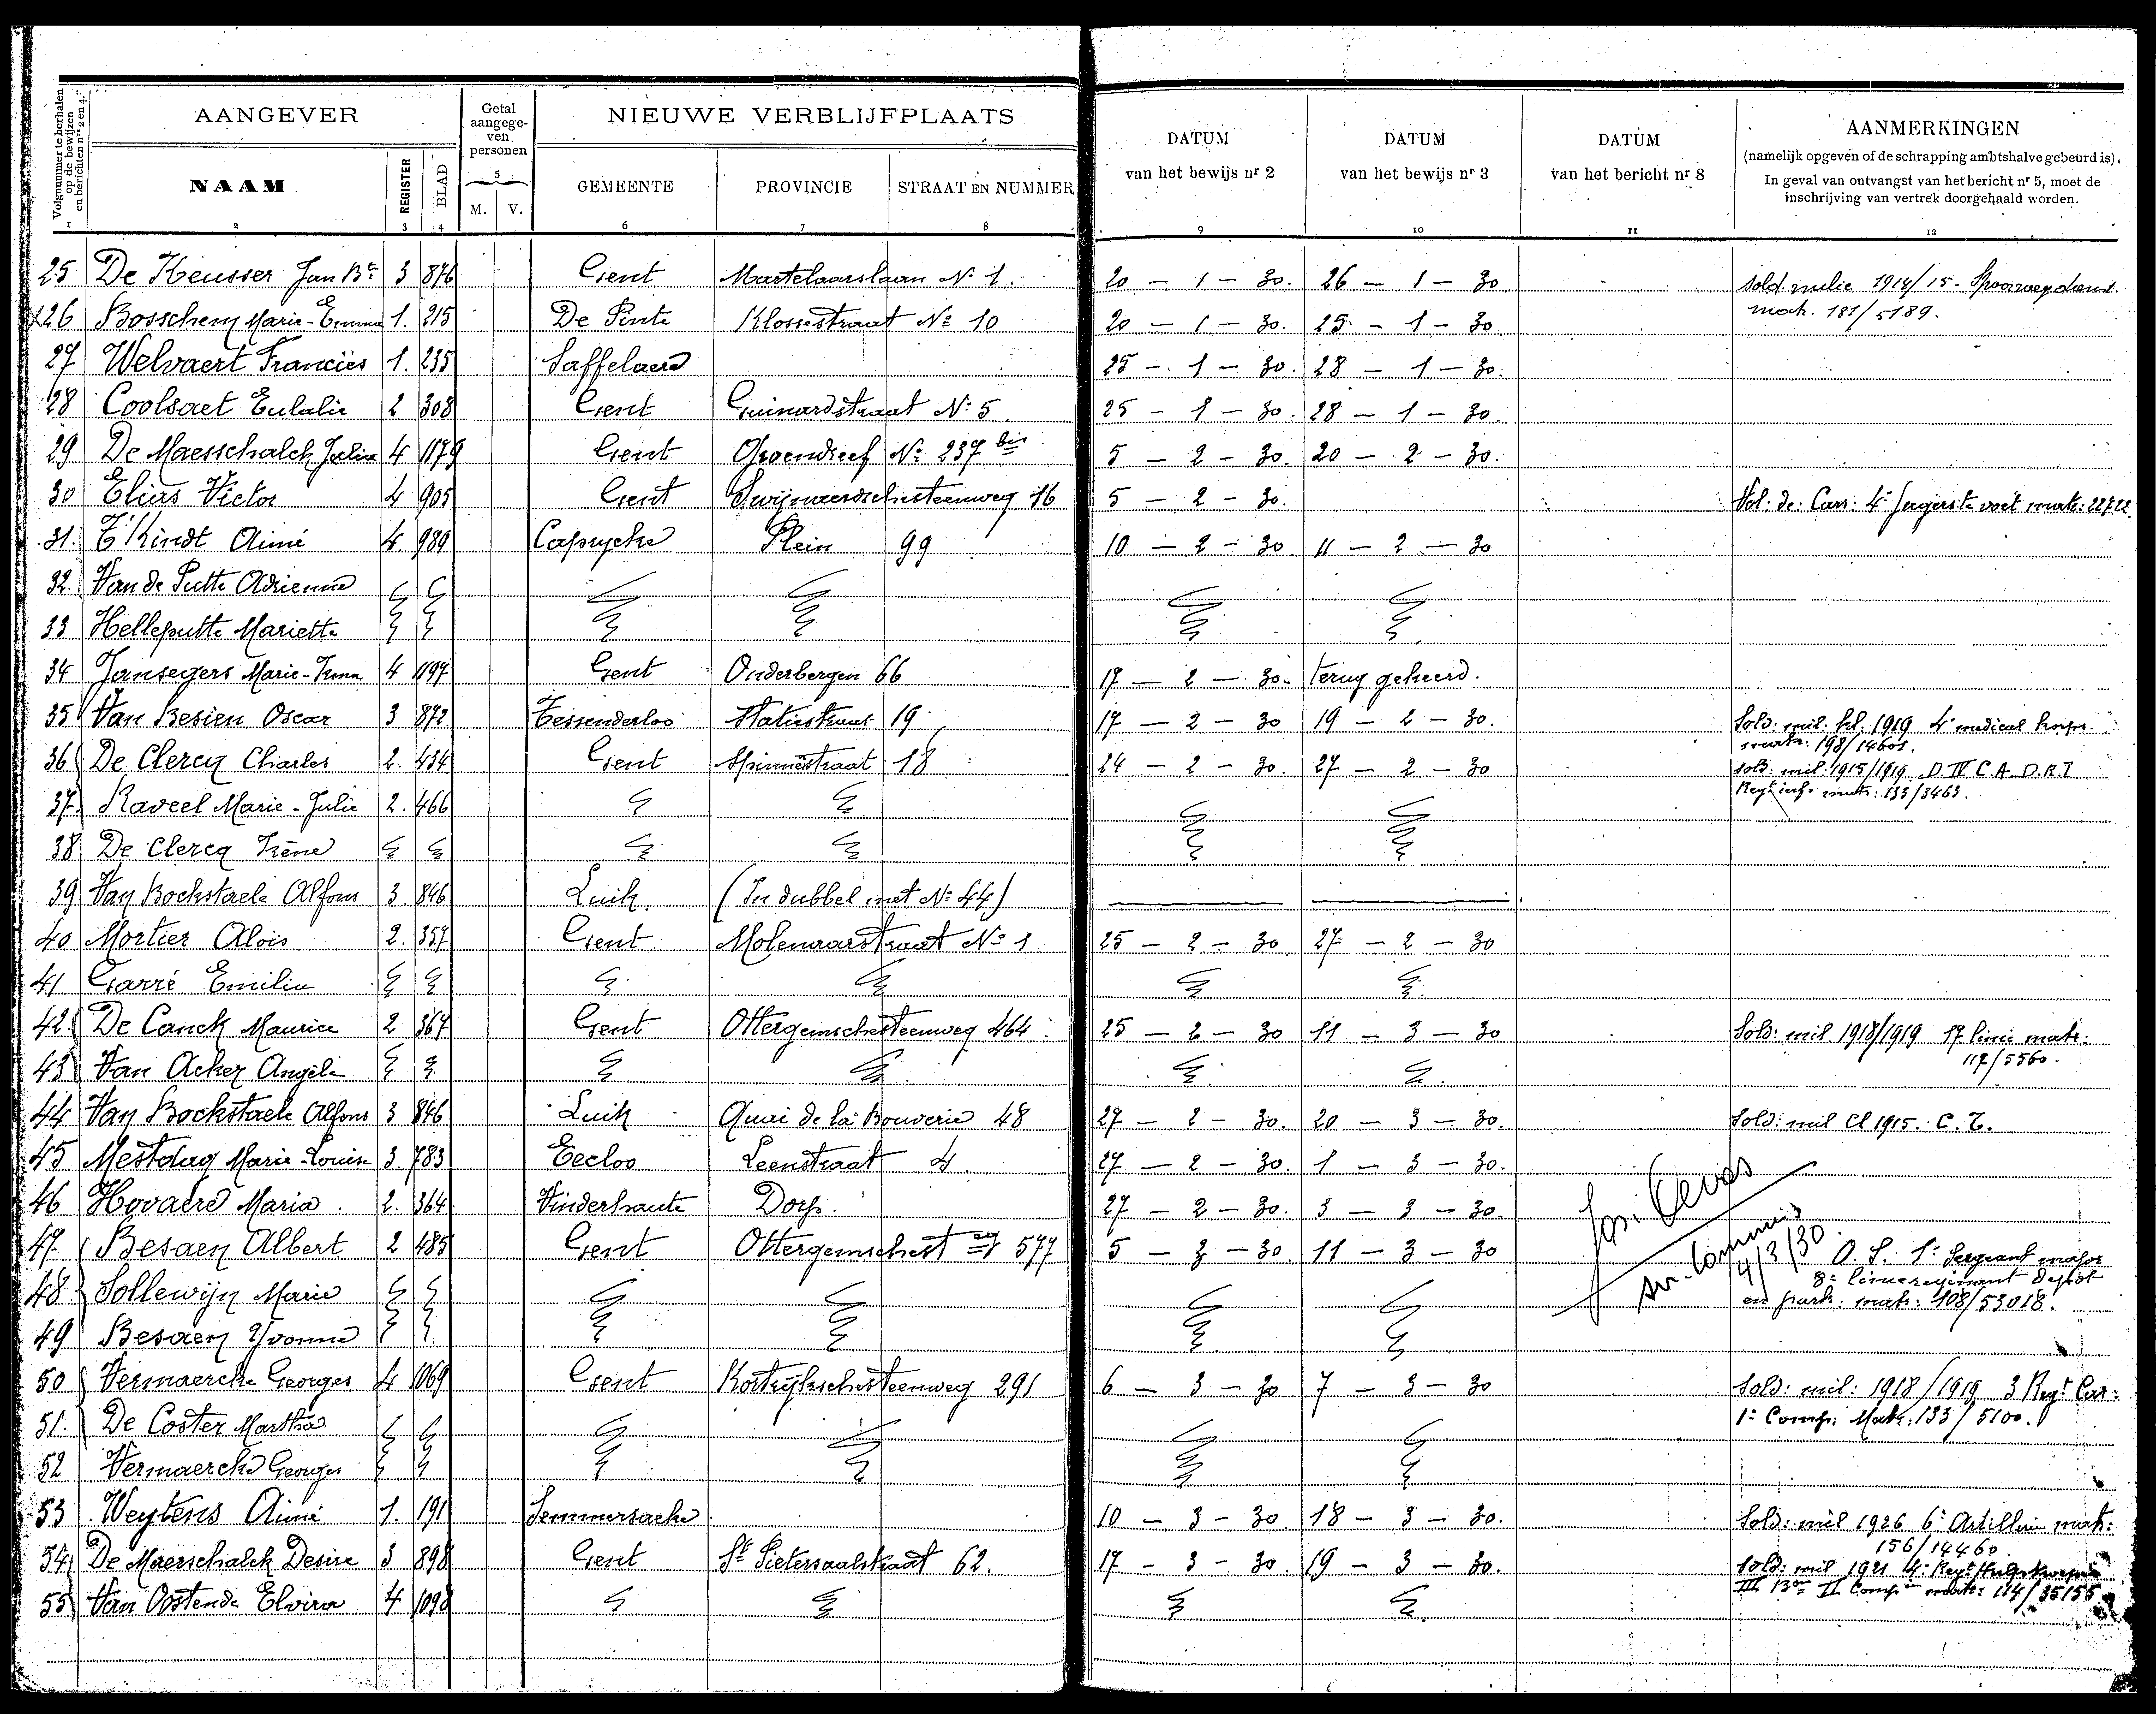 Volgnummer te herhalen op de bewijzen en berichten nrs 2 en 4.
AANGEVER
Getal aangege-ven personen
NIEUWE VERBLIJFPLAATS
DATUM van het bewijs nr 2
DATUM van het bewijs nr 3
DATUM van het bericht nr 8
AANMERKINGEN
(namelijk opgeven of de schrapping ambtshalve gebeurd is).
In geval van ontvangst van het bericht nr 5, moet de
inschrijving van vertrek doorgehaald worden.
NAAM REGISTER BLAD M. V. GEMEENTE PROVINCIE STRAAT EN NUMMER
1 2 3 4 5 6 7 8 9 10 11 12
25 De Keusser Jan Bte 3 876 Gent Martelaarslaan No 1. 20 – 1 – 30. 26 – 1 – 30 sold. milie 1914/15. Spoorwegdienst.
matr. 181/5189.
x26 Bosschem Marie-Emma 1. 215 De Pinte Klossestraat No 10 20 – 1 – 30. 25 – 1 – 30
27 Welvaert Franciës 1. 235 Saffelaere 25 – 1 – 30. 28 – 1 – 30.
28 Coolsaet Eulalie 2 308 Gent Guinardstraat No 5 25 – 1 – 30. 28 – 1 – 30.
29 De Maesschalck Julia 4 1179 Gent Groendreef No 237 bis 5 – 2 – 30. 20 – 2 – 30.
30 Elias Victor 4 905 Gent Swijnaerdschesteenweg 16 5 – 2 – 30. Vol: de: Carr: 4e Jagers te voet matr: 22722.
31. T'Kindt Aimé 4. 989 Caprycke Plein 99 10 – 2 – 30 11 – 2 – 30
32. Van de Putte Adrienne
33 Helleputte Mariette
34 Jansegers Marie-Irma 4 1197 Gent Onderbergen 66 17 – 2 – 30. terug gekeerd.
35 Van Besien Oscar 3 872 Tessenderloo Statiestraat 19 17 – 2 – 30 19 – 2 – 30. Sold: mil: kl. 1919 4e medical korps.
matr: 198/14601.
36 De Clercq Charles 2. 434 Gent Spinnestraat 18 24 – 2 – 30. 27 – 2 – 30 sold: mil: 1915/1919 D.IV C.A.D.R.I
Regt inf. matr: 133/3463.
37. Raveel Marie-Julie 2. 466
38 De Clercq Irène
39 Van Bockstaele Alfons 3. 846 Luik. (In dubbel met No 44)
40 Mortier Alois 2. 357 Gent Molenaarstraat No 1 25 – 2 – 30 27 – 2 – 30
41 Garré Emilie
42. De Canck Maurice 2 367 Gent Ottergemschesteenweg 464. 25 – 2 – 30 11 – 3 – 30 Sold: mil 1918/1919 17 linie matr:
117/5560.
43 Van Acker Angèle
44 Van Bockstaele Alfons 3 846 Luik Quai de la Bouverie 48 27 – 2 – 30. 20 – 3 – 30. Sold: mil Cl 1915. C.T.
45 Mestdag Marie-Louise 3 783 Eecloo Leenstraat 4. 27 – 2 – 30. 1 – 3 – 30.
46 Hovaere Maria 2. 364 Vinderhaute Dorp. 27 – 2 – 30. 3 – 3 – 30.
4/3/30.
47. Besaen Albert 2 485 Gent Ottergemschest eg 577 5 – 3 – 30 11 – 3 – 30 O.S. 1e Sergeant major
8e linieregiment depot
en park: matr: 108/53018.
48 Sollewijn Marie
49 Besaen Yvonne
50 Vermaercke Georges 4 1069 Gent Kortrijkschesteenweg 291 6 – 3 – 30 7 – 3 – 30 Sold: mil: 1918/1919 3 Regt Car:
1e Comp: Matr: 133/5100.
51. De Coster Martha
52 Vermaercke Georges
53 Weytens Aimé 1. 191 Semmersacke 10 – 3 – 30. 18 – 3 – 30. Sold: mil 1926 6e Artillerie matr:
156/14460
54 De Maerschalck Desire 3 898 Gent St Pietersaalstraat 62. 17 – 3 – 30. 19 – 3 – 30. Sold: mil 1921 4e Regt Hulptroepen
III Bon II Compie matr: 114/35155
55 Van Oostende Elvira 4 1098